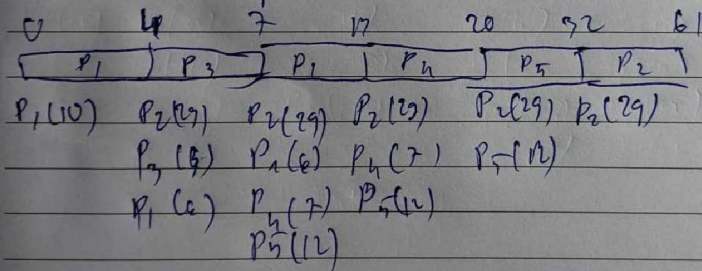 0 4 7 13 20 32 61
P1 P3 P1 P4 P5 P2
P1(10) P2(29) P2(29) P2(29) P2(29) P2(29)
P3(3) P1(6) P4(7) P5(12)
P1(6) P4(7) P5(12)
P5(12)